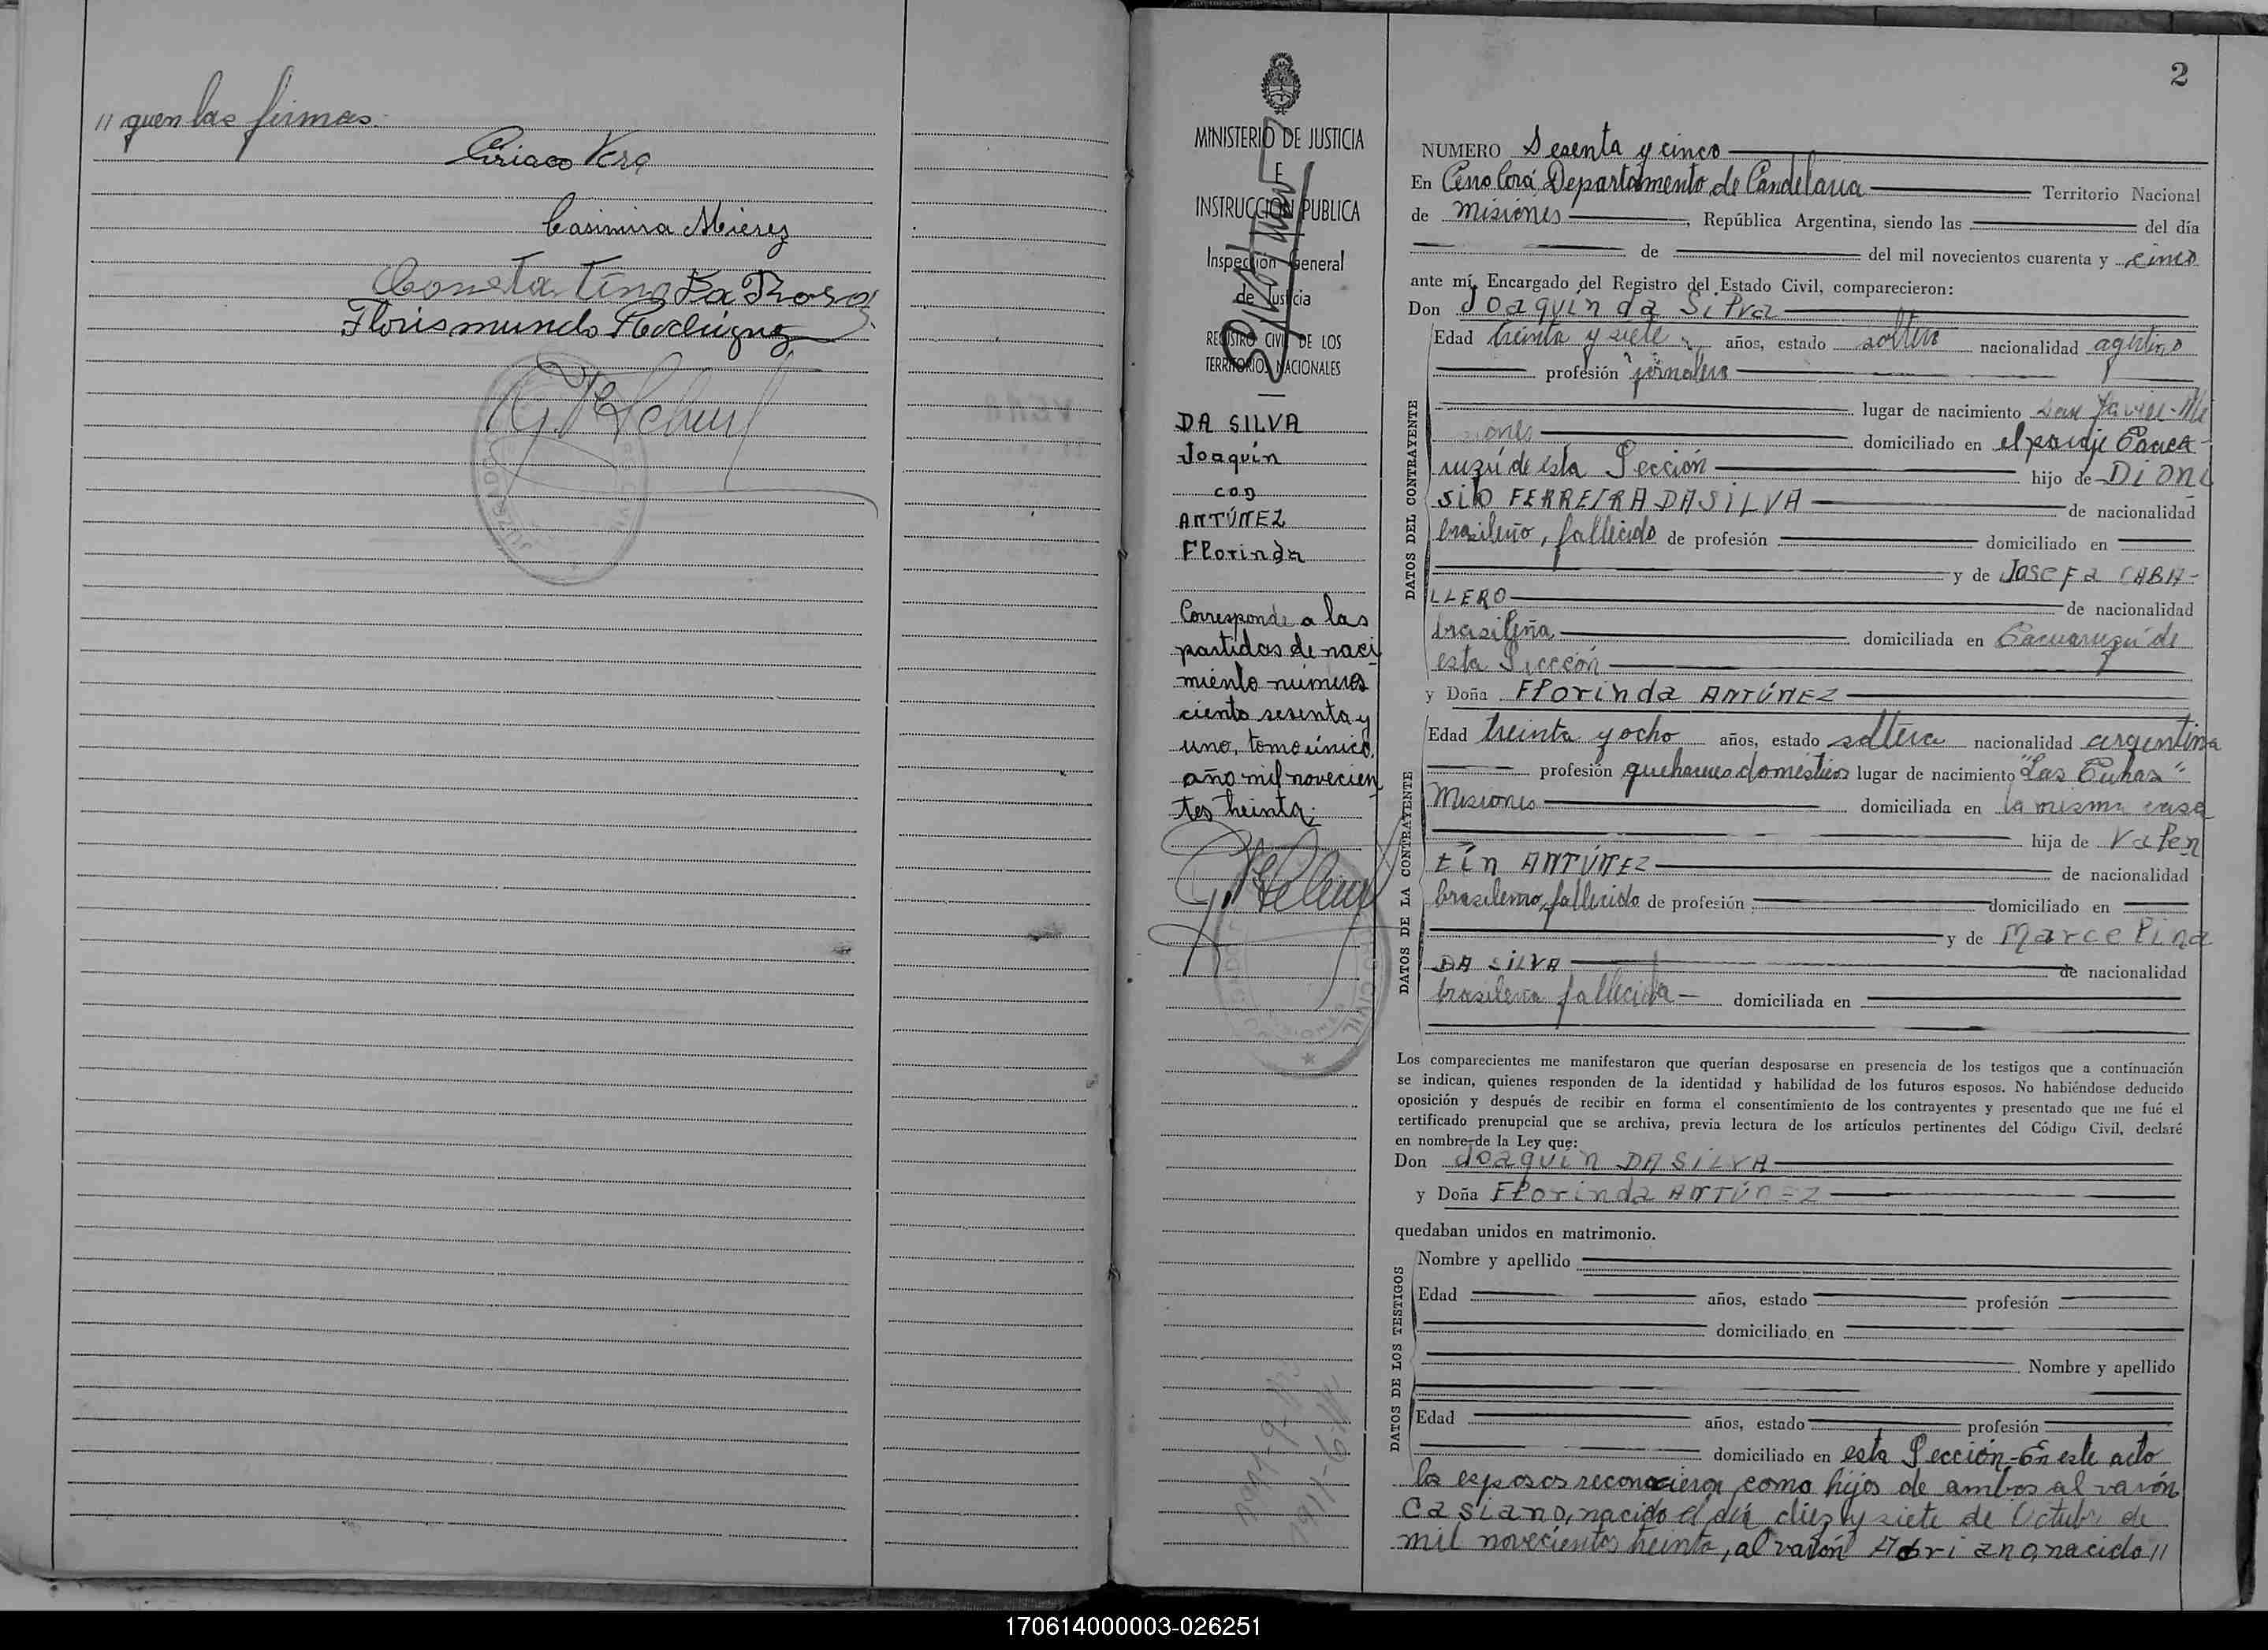 // guen las firmas.
Ciriaco Vera
Casimira Mierez
Constantino Da Rosa
Florismundo Rodriguez
2
MINISTERIO DE JUSTICIA
E
INSTRUCCION PUBLICA
Inspección General
de Justicia
REGISTRO CIVIL DE LOS
TERRITORIOS NACIONALES
DA SILVA
Joaquín
con
ANTÚNEZ
Florinda
Corresponde a las
partidas de naci
miento número
ciento sesenta y
uno, tomo único,
año mil novecien
tos treinta.
NUMERO Sesenta y cinco
En Cerro Corá Departamento de Candelaria Territorio Nacional
de Misiones, República Argentina, siendo las del día
de del mil novecientos cuarenta y cinco
ante mí, Encargado del Registro del Estado Civil, comparecieron:
Don Joaquín da Silva
Edad treinta y siete años, estado soltero nacionalidad argentino
profesión jornalero
lugar de nacimiento San Javier - Mi
siones domiciliado en el paraje
de esta Sección hijo de DIONI
SIO FERREIRA DA SILVA de nacionalidad
brasileño, fallecido de profesión domiciliado en
y de JOSEFA CABA-
LLERO de nacionalidad
brasileña domiciliada en de
esta Sección
y Doña Florinda ANTÚNEZ
Edad treinta y ocho años, estado soltera nacionalidad argentina
profesión quehaceres domésticos lugar de nacimiento "Las
Misiones domiciliada en la misma casa
hija de Valen
tín ANTÚNEZ de nacionalidad
brasilero, fallecido de profesión domiciliado en
y de Marcelina
DA SILVA de nacionalidad
brasilera fallecida domiciliada en
DATOS DEL CONTRAYENTE
DATOS DE LA CONTRAYENTE
Los comparecientes me manifestaron que querían desposarse en presencia de los testigos que a continuación
se indican, quienes responden de la identidad y habilidad de los futuros esposos. No habiéndose deducido
oposición y después de recibir en forma el consentimiento de los contrayentes y presentado que me fué el
certificado prenupcial que se archiva, previa lectura de los artículos pertinentes del Código Civil, declaré
en nombre de la Ley que:
Don Joaquín DA SILVA
y Doña Florinda ANTÚNEZ
quedaban unidos en matrimonio.
DATOS DE LOS TESTIGOS
Nombre y apellido
Edad años, estado profesión
domiciliado en
Nombre y apellido
Edad años, estado profesión
domiciliado en esta Sección - En este acto
los esposos reconocieron como hijos de ambos al varón
Casiano, nacido el día diez y siete de Octubre de
mil novecientos treinta, al varón Adriano, nacido //
170614000003-026251